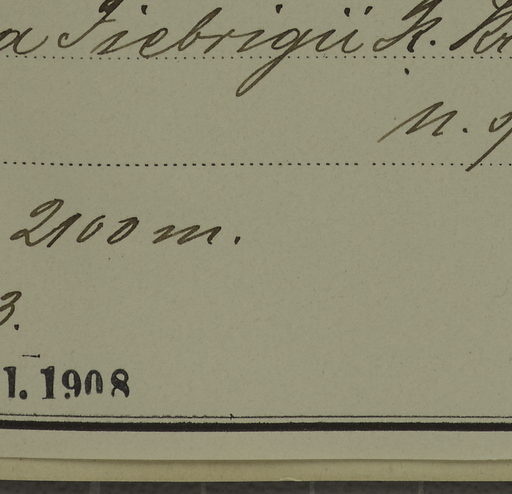 a Fiebrigii K. Kr
n. s
2100 m.
3.
1. 1908